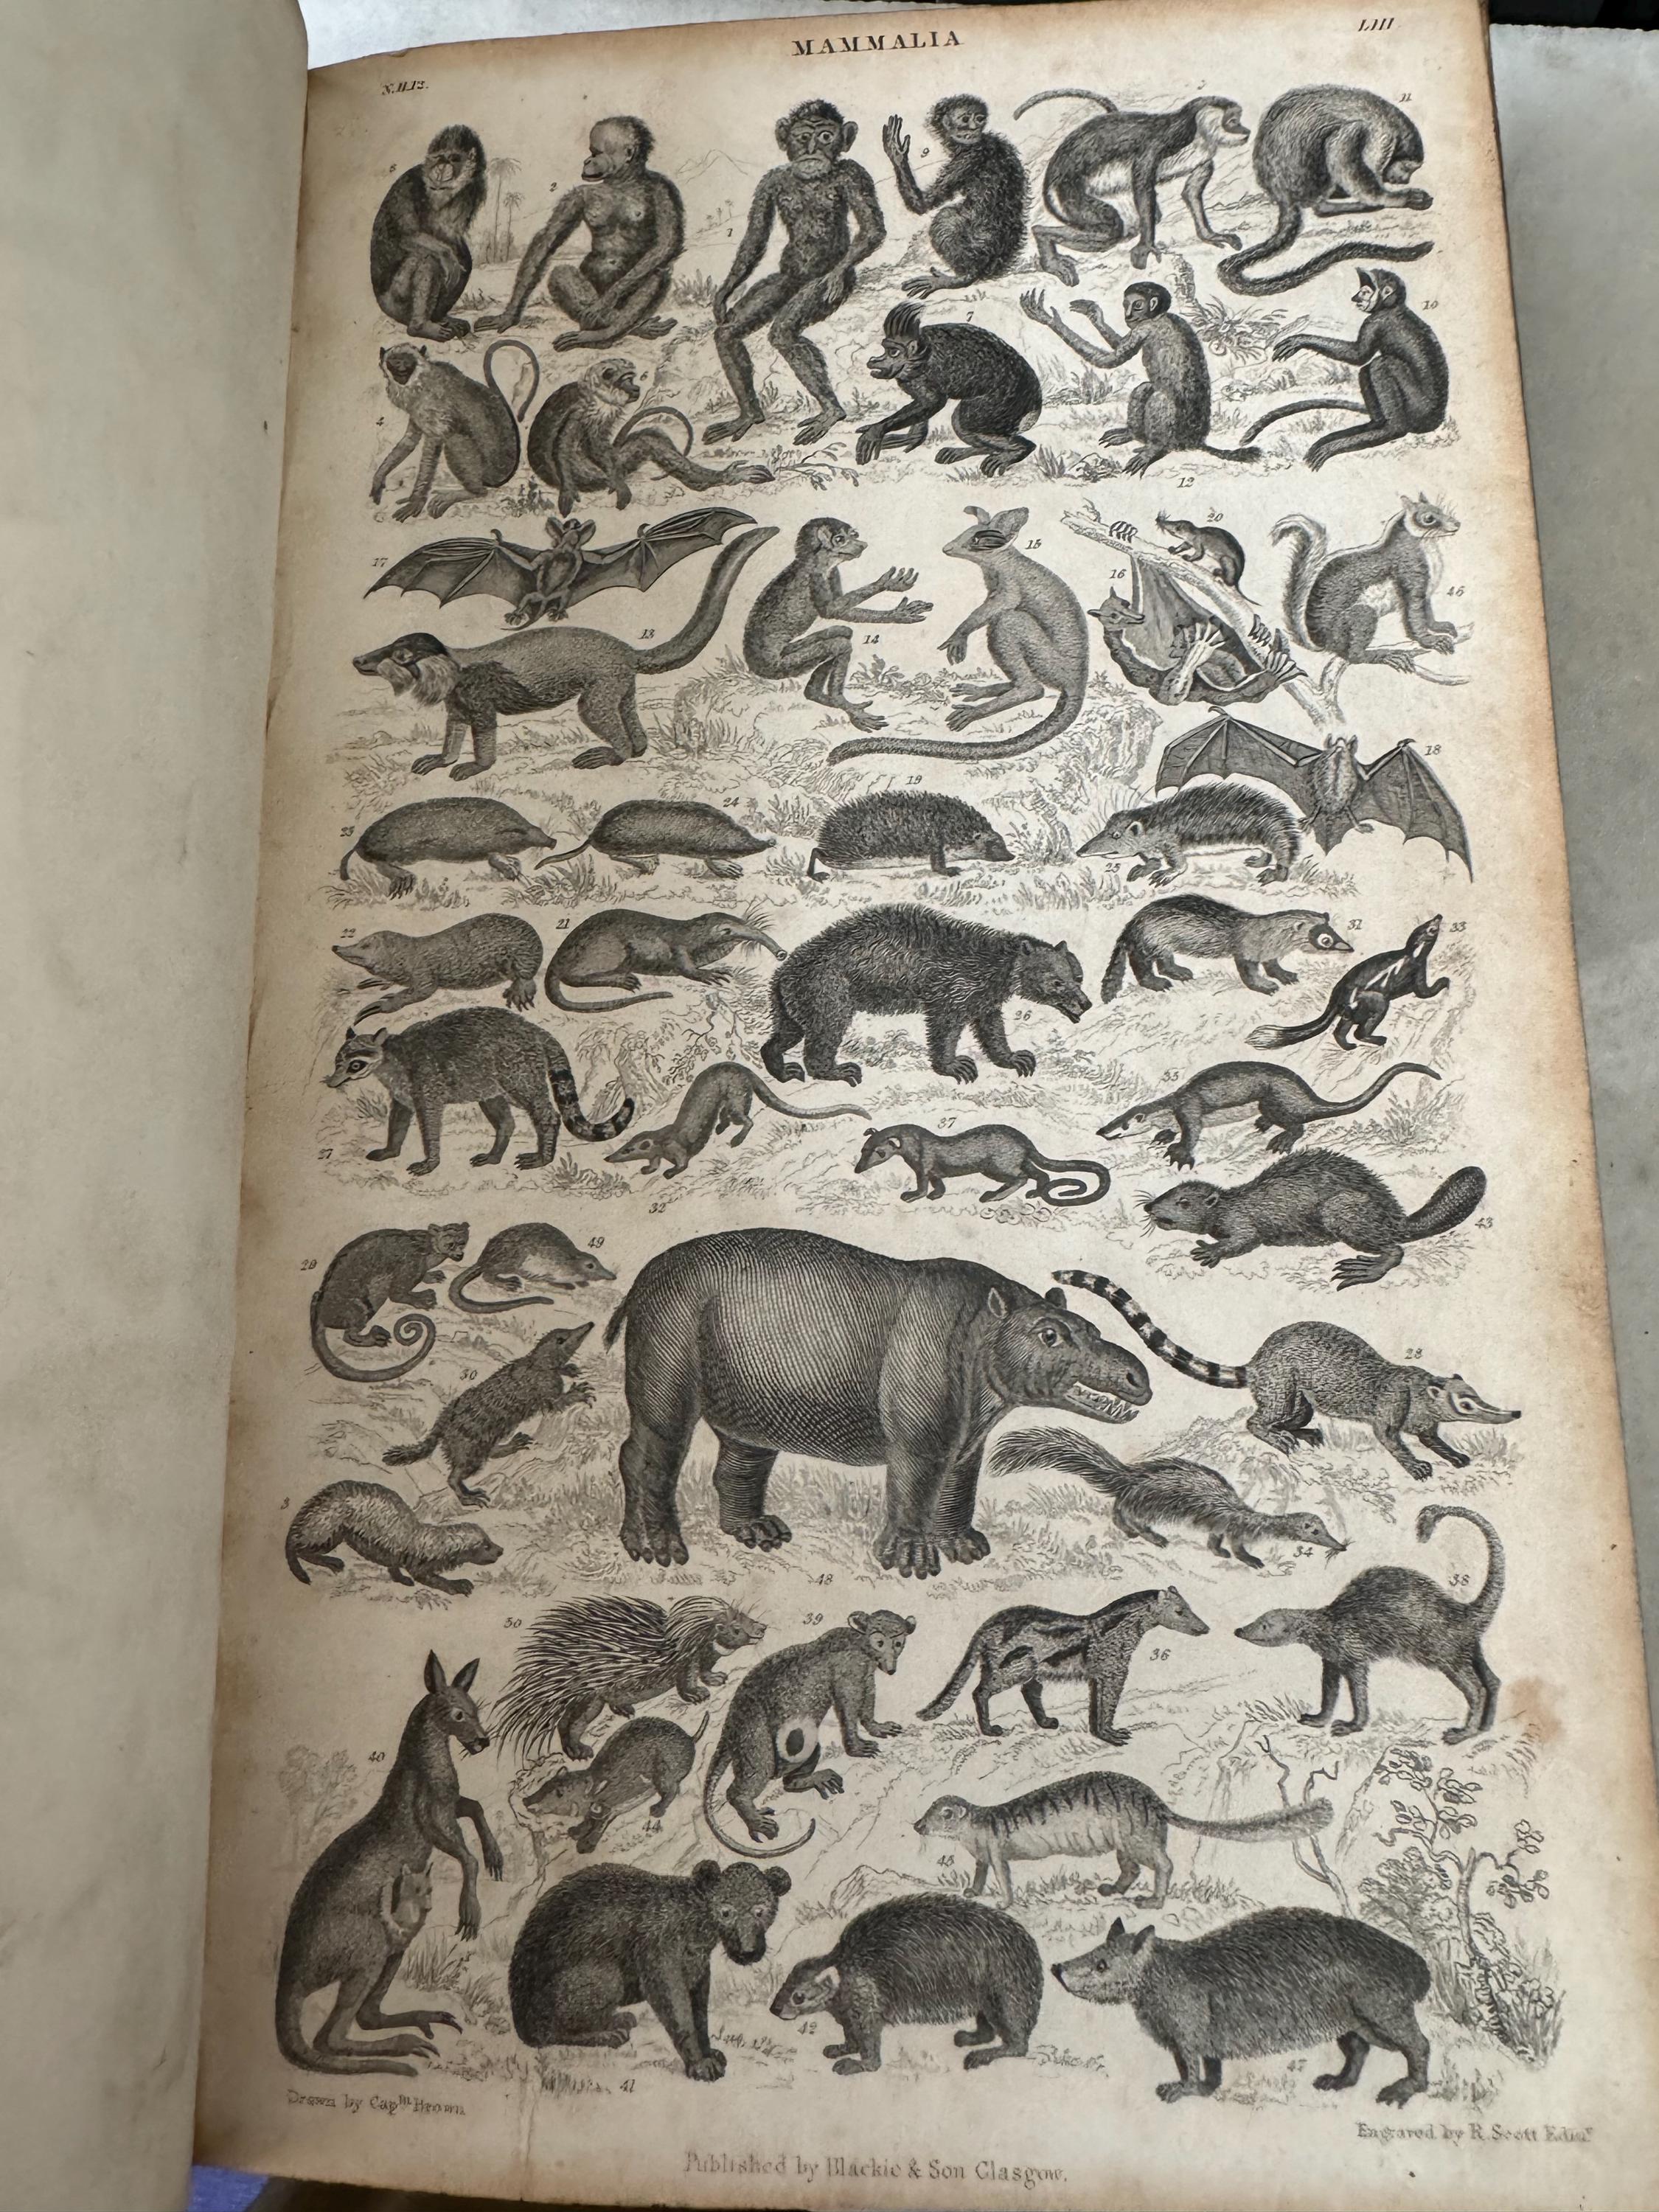 MAMMALIA
LIII
N.H.12.
5
2
1
9
3
11
10
7
4
6
12
17
13
14
15
20
16
46
18
23
24
19
25
22
21
26
31
33
27
32
37
35
43
29
49
30
28
34
48
50
39
36
38
40
44
45
41
42
47
Drawn by Capt. Brown
Engraved by R. Scott Edinr.
Published by Blackie & Son Glasgow.